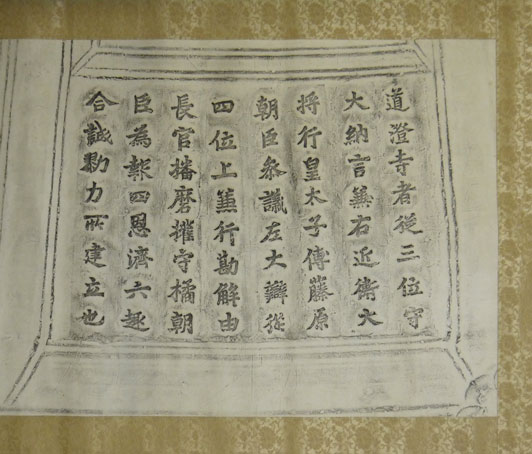 道澄寺者從三位守
大納言兼右近衛大
将行皇太子傅藤原
朝臣叅議左大辯從
四位上兼行勘解由
長官播磨權守橘朝
臣為報四恩濟六趣
合誠勠力所建立也